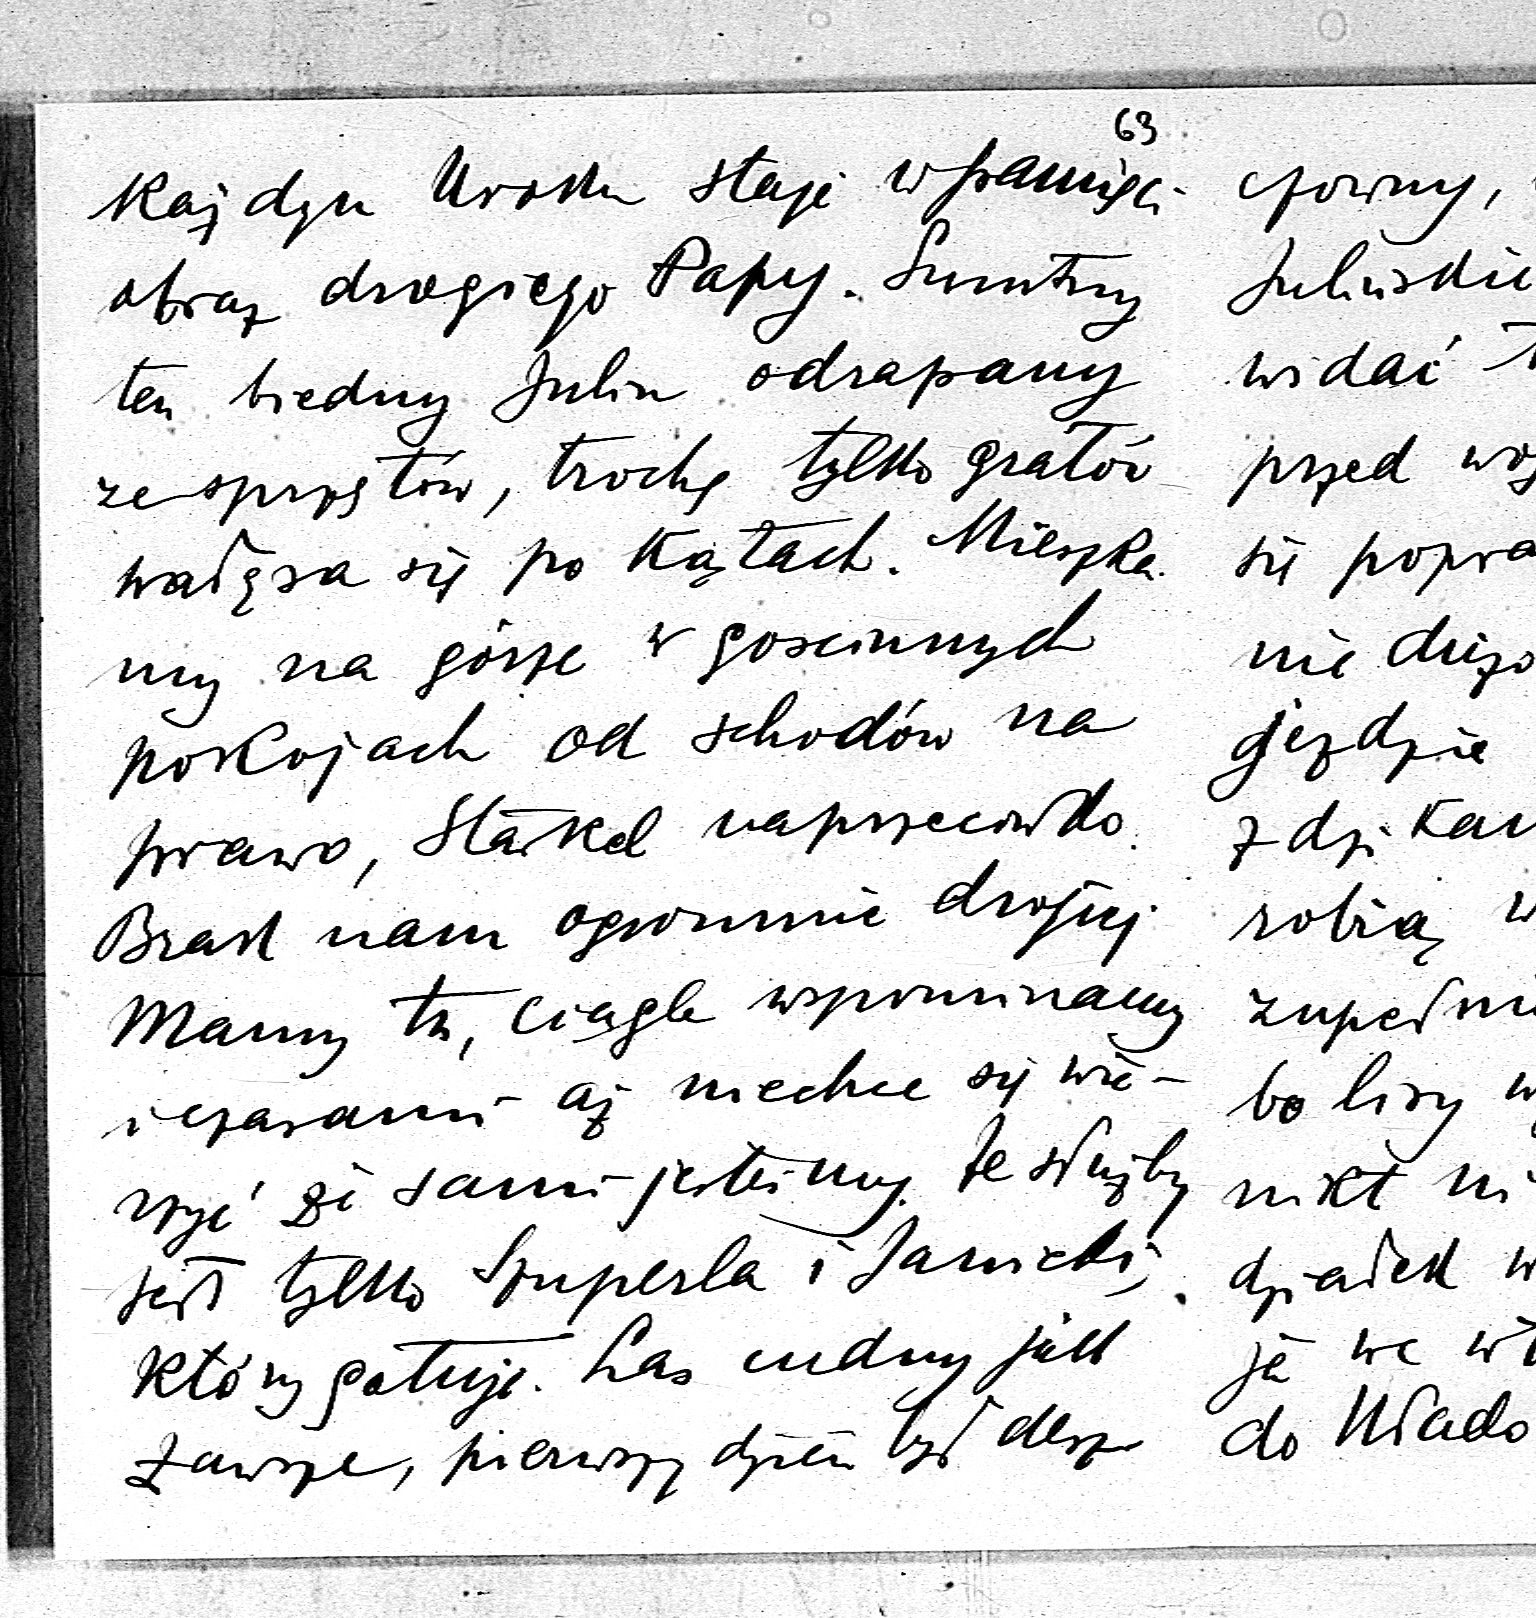 63
każdyn kroku staje w pamięci
obraz drogiego Papy. Smutny
ten biedny Julin odrapany
ze sprzętów, trochę tylko gratów
wałęsa się po kątach. Mieszka
my na górze w goscinnych
pokojach od schodów na
prawo, Starkel naprzeciwko.
Brak nam ogromnie drogiej
Mamy tu, ciągle wspominamy
i czasami aż niechce się wie-
rzyć że sami jesteśmy. Ze służby
jest tylko Szuperla i Janicki,
który gotuje. Las cudny jak
zawsze, pierwszy dzień był deszcz
czowny,
Julińskie
widać
przed woj
się popra
nie dużo
jeździe
z dzikam
robią w
zupełnie
bo lisy w
nikt ni
dziadek w
ja we wt
do Wlado